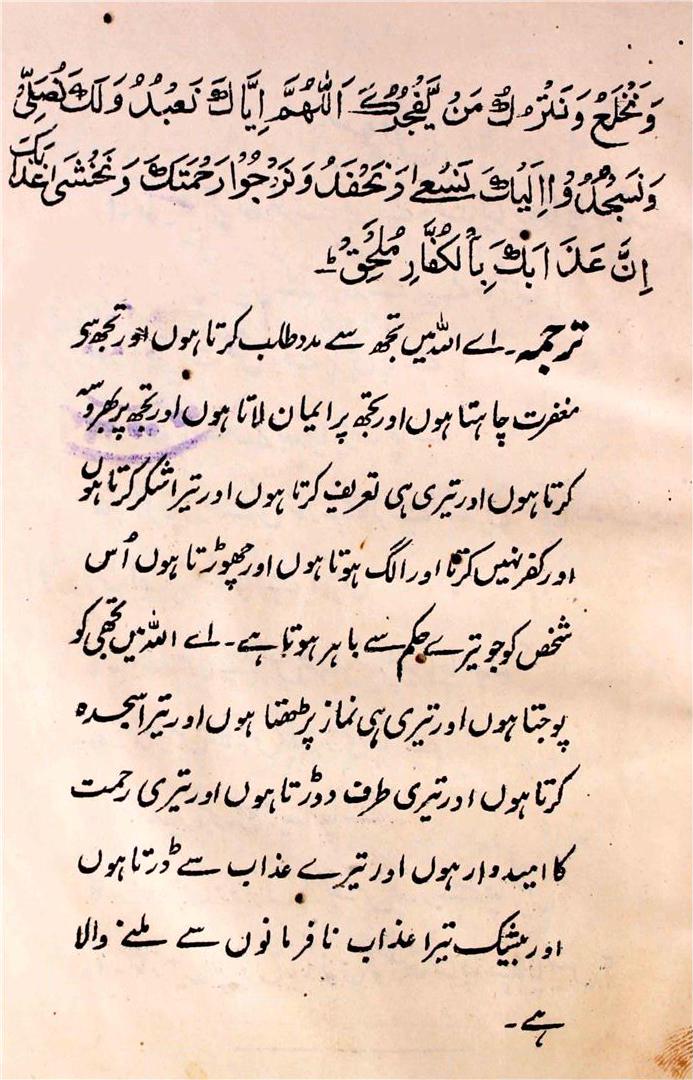 وَنَخْلَعُ وَنَتْرُكُ مَنْ يَّفْجُرُكَ اَللّٰهُمَّ اِيَّاكَ نَعْبُدُ وَلَكَ نُصَلِّيْ
وَنَسْجُدُ وَاِلَيْكَ نَسْعٰى وَنَحْفِدُ وَنَرْجُوْا رَحْمَتَكَ وَنَخْشٰى عَذَابَكَ
اِنَّ عَذَابَكَ بِالْكُفَّارِ مُلْحِقٌ ؕ
ترجمہ۔ اے اللہ میں تجھ سے مدد طلب کرتا ہوں اور تجھ سی
مغفرت چاہتا ہوں اور تجھ پر ایمان لاتا ہوں اور تجھ پر بھروسہ
کرتا ہوں اور تیری ہی تعریف کرتا ہوں اور تیرا شکر کرتا ہوں
اور کفر نہیں کرتا اور الگ ہوتا ہوں اور چھوڑتا ہوں اُس
شخص کو جو تیرے حکم سے باہر ہوتا ہے۔ اے اللہ میں تجھی کو
پوجتا ہوں اور تیری ہی نماز پڑھتا ہوں اور تیرا سجدہ
کرتا ہوں اور تیری طرف دوڑتا ہوں اور تیری رحمت
کا امیدوار ہوں اور تیرے عذاب سے ڈرتا ہوں
اور بیشک تیرا عذاب نافرمانوں سے ملنے والا
ہے۔